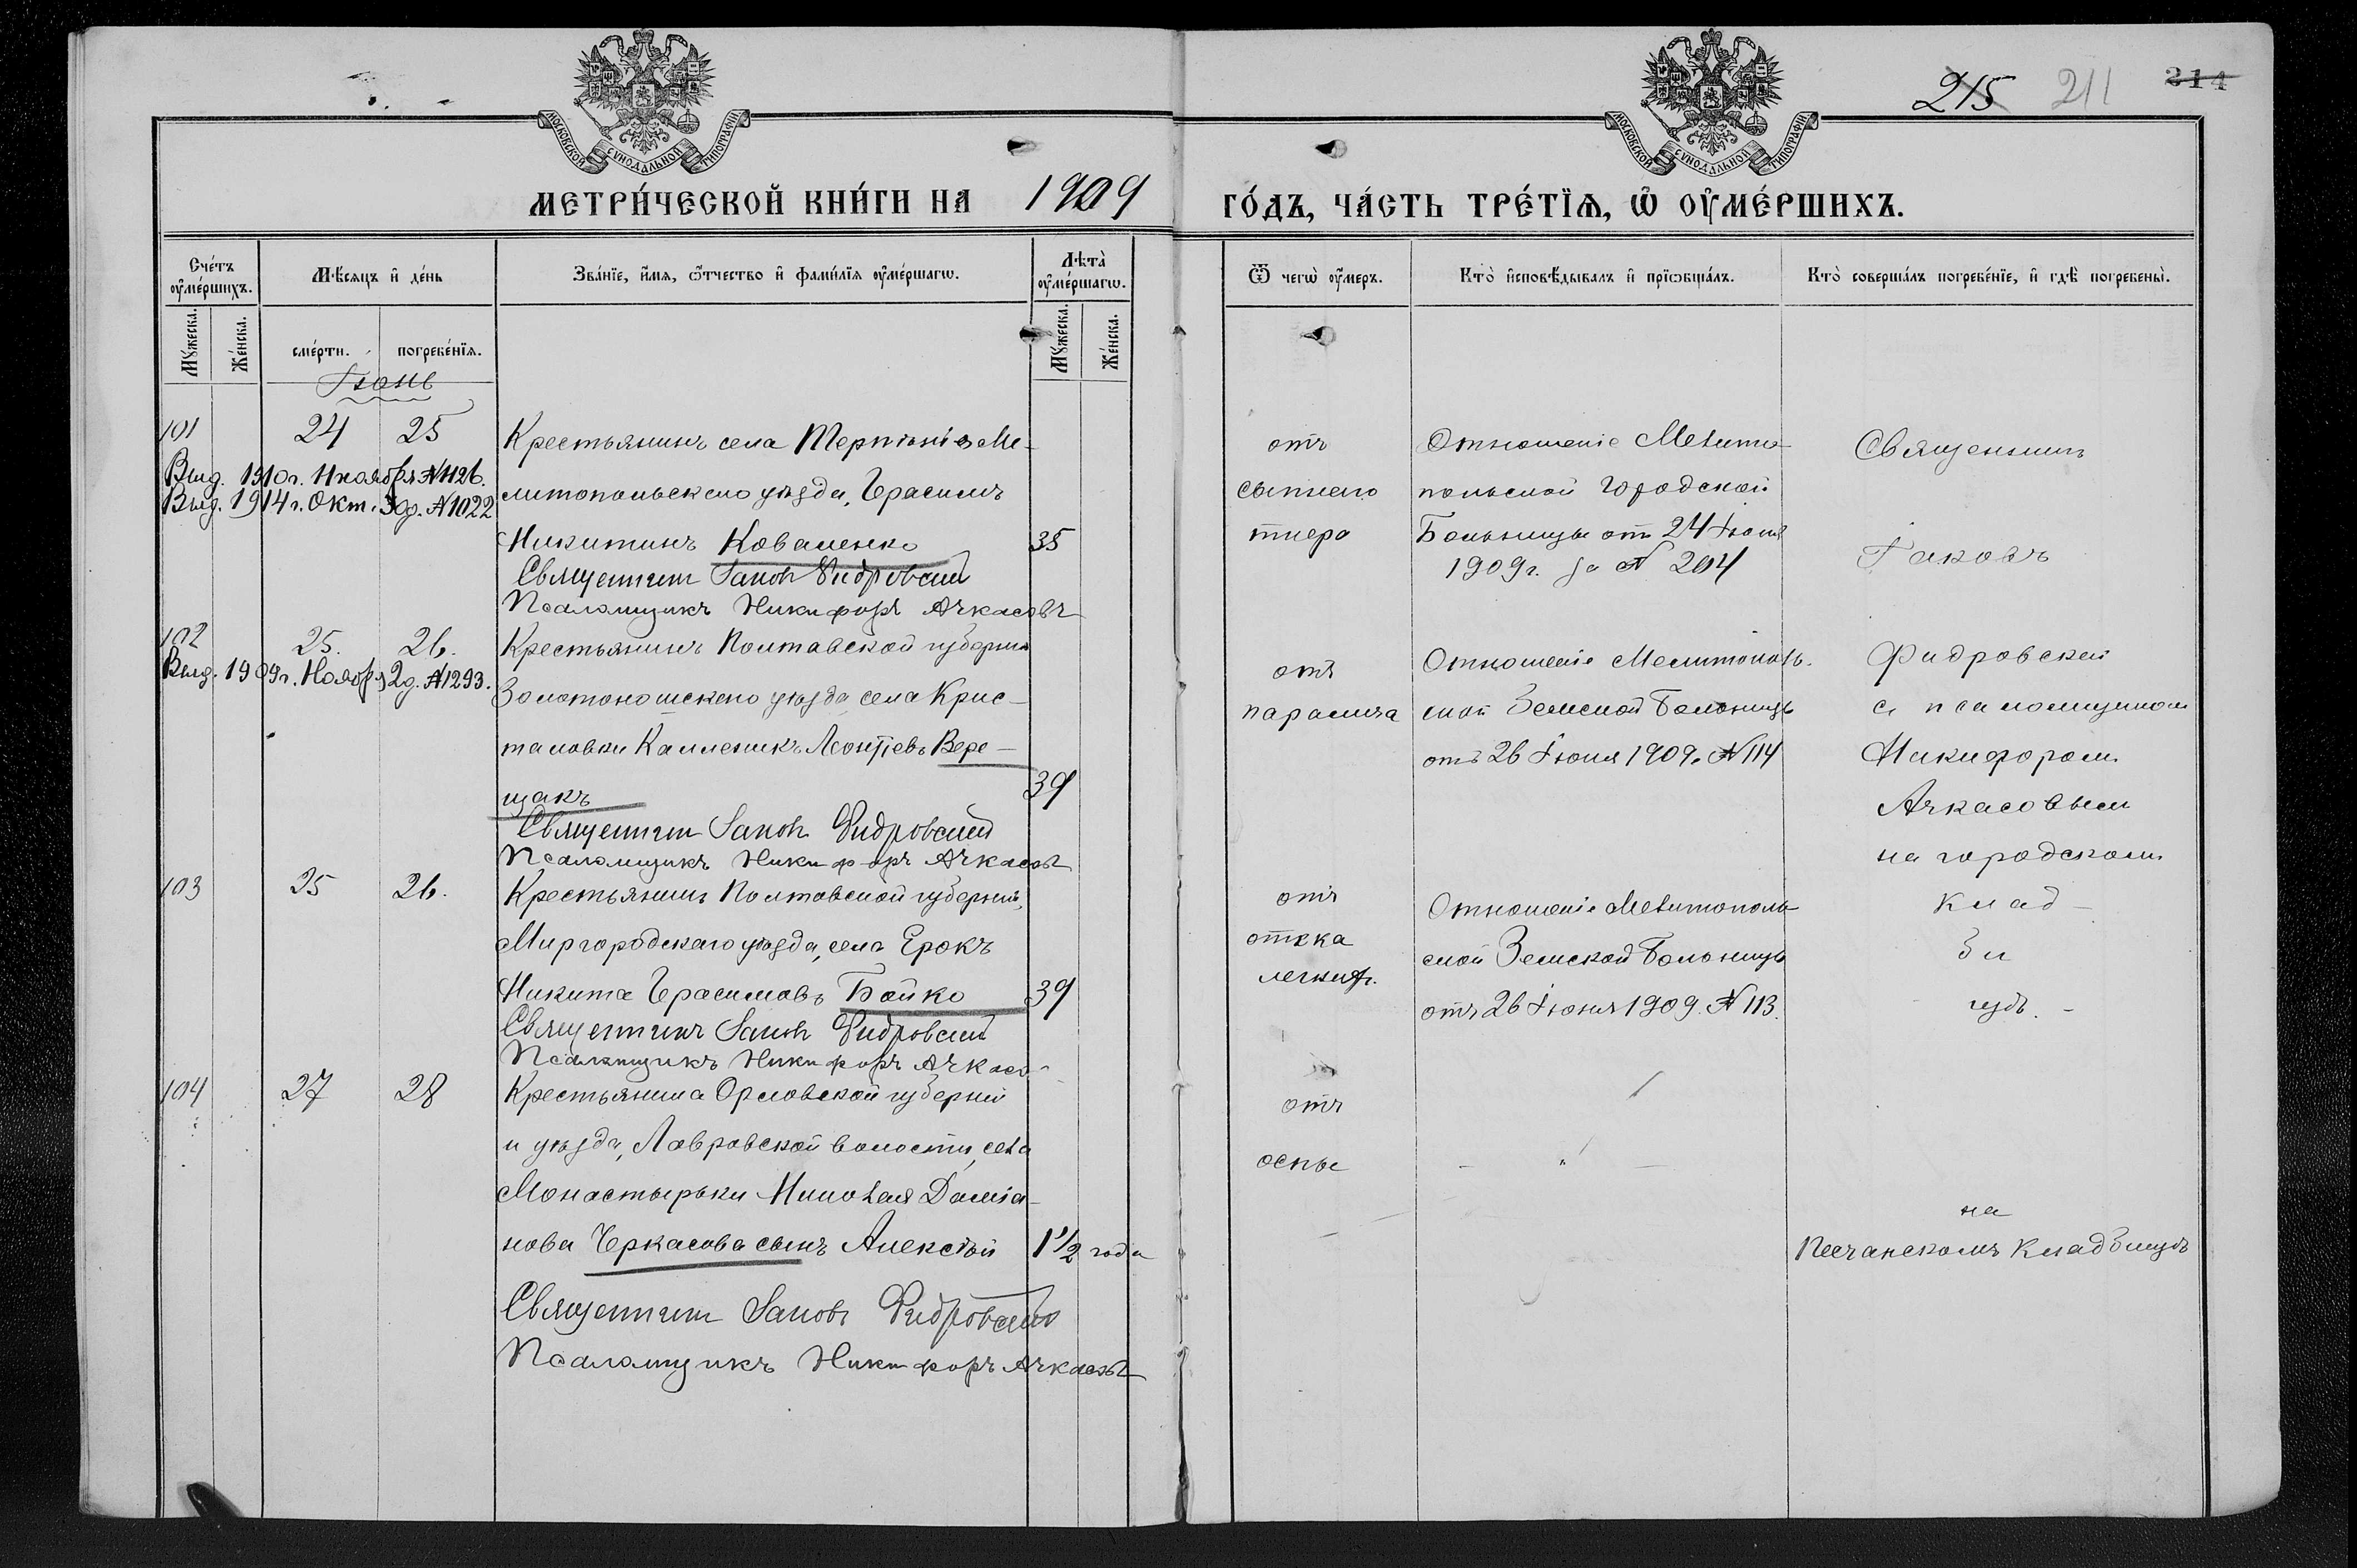 МОСКОВСКОЙ СѴНОДАЛЬНОЙ ТИПОГРАФІИ
МОСКОВСКОЙ СѴНОДАЛЬНОЙ ТИПОГРАФІИ
215 211 214
МЕТРИ́ЧЕСКОЙ КНИ́ГИ НА 1909 ГО́ДЪ, ЧА́СТЬ ТРЕ́ТЇѦ, Ѡ҆ ОУ҆МЕ́РШИХЪ.
Сче́тъ оу҆ме́ршихъ.
Мѣ́сяцъ и҆ де́нь
Зва́нїе, и҆́мя, ѻ҆́тчество и҆ фами́лїя оу҆ме́ршагѡ.
Лѣта̀ оу҆ме́ршагѡ.
Ѿ чегѡ̀ оу҆́меръ.
Кто̀ и҆сповѣ́дывалъ и҆ прїѡбща́лъ.
Кто̀ соверша́лъ погребе́нїе, и҆ гдѣ̀ погребены̀.
Мꙋ́жеска.
Же́нска.
сме́рти.
погребе́нїя.
Мꙋ́жеска.
Же́нска.
Іюнь
101 24 25
Выд. 1910г. 11 ноября № 1126.
Выд. 1914г. Окт. 3 д. № 1022
Крестьянинъ села Терпѣнія Ме-
литопольскаго уѣзда, Герасимъ
Никитинъ Коваленко 35
Священникъ Іаковъ Фидровскій
Псаломщикъ Никифоръ Ачкасовъ
отъ
сыпнаго
тифа
Отношеніе Мелито-
польской Городской
Больницы отъ 24 Іюня
1909г. за № 204
Священникъ
Іаковъ
102 25. 26.
Выд. 1909г. Ноября 2 д. № 1293.
Крестьянинъ Полтавской губерніи
Золотоношскаго уѣзда села Крис-
таловки Каленикъ Леонтіевъ Вере-
щакъ 39
Священникъ Іаковъ Фидровскій
Псаломщикъ Никифоръ Ачкасовъ
отъ
паралича
Отношеніе Мелитополь-
ской Земской Больницы
отъ 26 Іюня 1909. № 114
Фидровскій
съ псаломщикомъ
Никифоромъ
Ачкасовымъ
на городскомъ
103 25 26.
Крестьянинъ Полтавской губерніи,
Миргородскаго уѣзда, села Ерокъ
Никита Герасимовъ Бойко 39
Священникъ Іаковъ Фидровскій
Псаломщикъ Никифоръ Ачкасов
отъ
отека
легкихъ.
Отношеніе Мелитополь-
ской Земской Больницы
отъ 26 Іюня 1909. № 113.
клад-
би
щѣ. -
104 27 28
Крестьянина Орловской губерніи
и уѣзда, Лавровской волости, села
Монастырьки Николая Даміа-
нова Черкасова сынъ Алексѣй 1 1/2 года
Священникъ Іаковъ Фидровскій
Псаломщикъ Никифоръ Ачкасовъ
отъ
оспы
на
Песчанскомъ Кладбищѣ